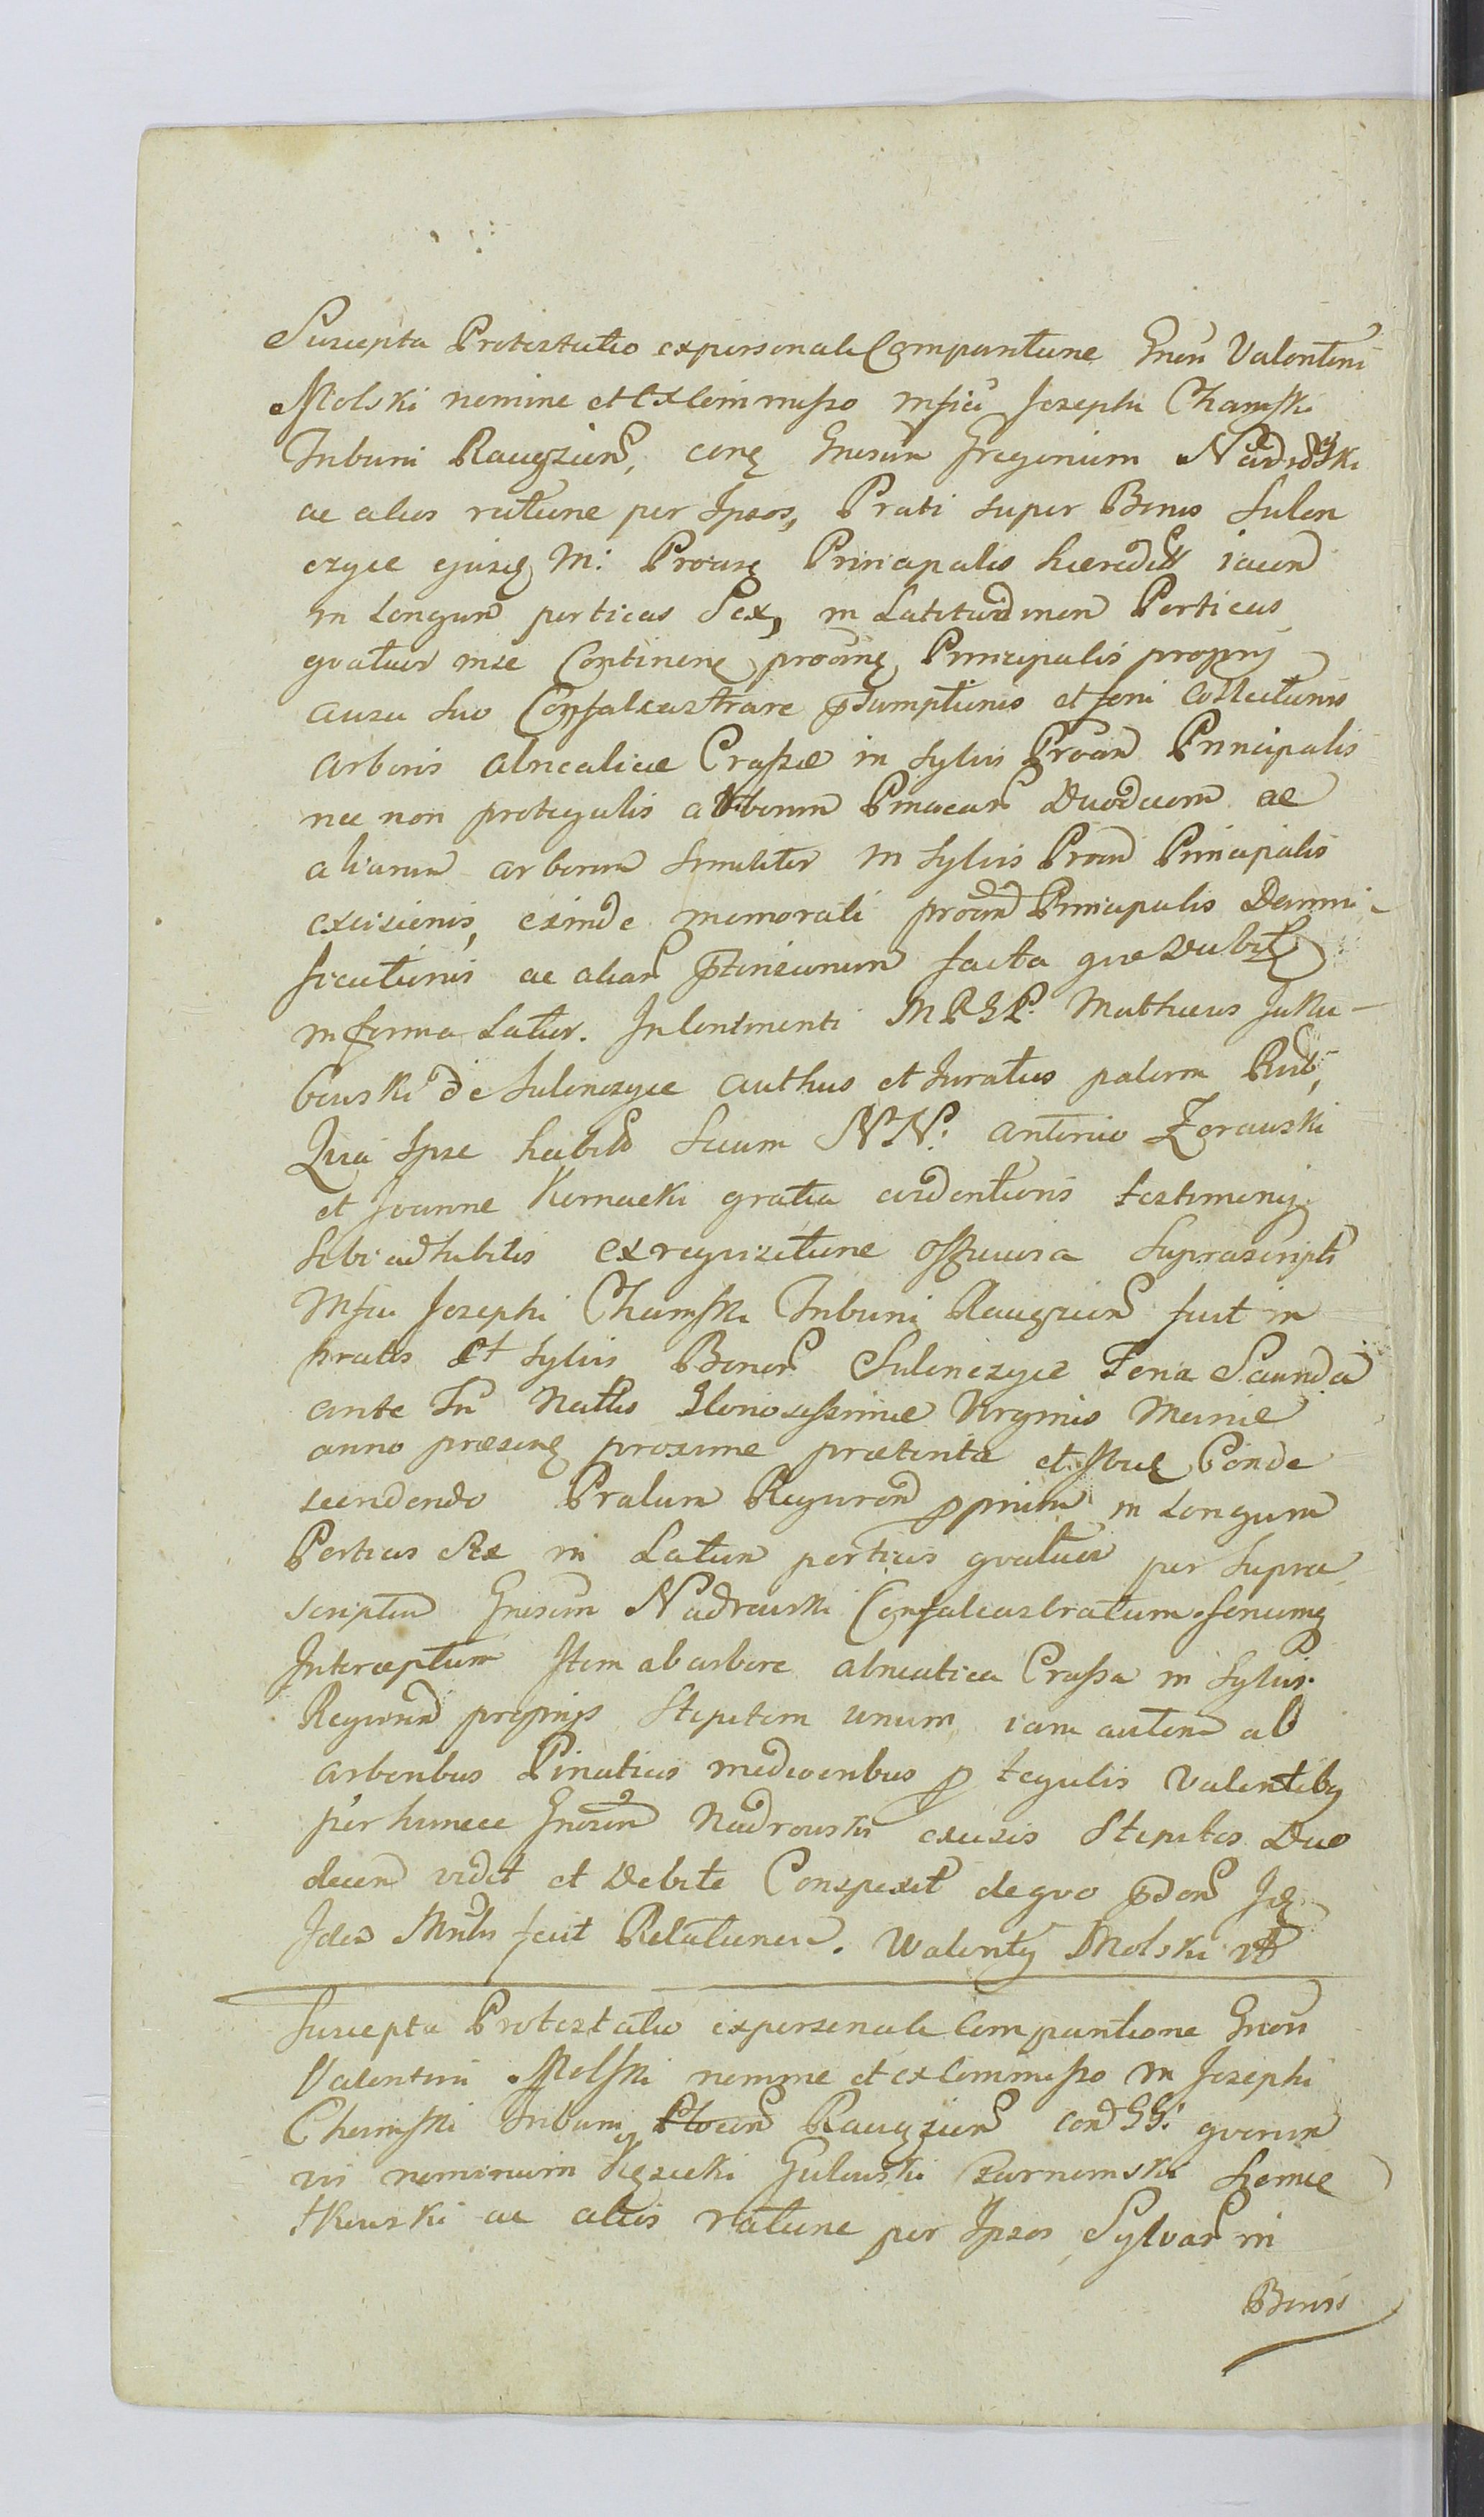 Suscepta Protestatio ex personali Comparitione Gnosi Valentini
Molski nomine et ex Commisso Mfici Josephi Chamski
Tribuni Raugzien, cong Gnosum Gregorium Nadroski
ac alios ratione per Ipsos, Prati super Bonis Sulen
czyce ejusq M: Proasg Principalis hæredit iacen
in Longum perticas Sex, in Latitudinem Perticas
qvatuor in se Continen proâng Principalis proprij
ausu suo Confalcastrare psumptionis et feni Collectionis
arboris alnealicae Crassæ in sylvis Proân Principalis
nec non pro tegulis arborum Pineaear Duodecem ac
aliarum arborum similiter in sylvis Proân Principalis
excisionis, exinde memorati proân Principalis Damni-
ficationis ac aliar ptensionum facta qvæ Dubit
in forma Latior. In Continenti MRGP. Mathæus Jaku-
bowski de Sulenczyce authus et Juratus palam Rnvt,
Quia Ipse habitis Secum NN: Antonio Zorawski
et Joanne Kornacki gratia evidentioris testimonij
sibi adhibitis ex reqvisitione Officiosa Suprascripti
Mfici Josephi Chamski Tribuni Raugzien fuit in
Pratis et Sylvis Bonor Sulenczyce Feria Secunda
ante Fn Nattis Gloriosissimæ Virginis Mariæ
anno præseng proxime præterita et Ibiq Conde
scendendo Pratum Reqviren pprium in Longum
Perticas Sex in Latum perticas qvatuor per Supra
scriptum Gnosum Nadrowski Confalcastratum fenumq
Interceptum Item ab arbore alneatica Crassa in Sylvis
Reqviren proprijs Stipitem unum iam autem ab
arboribus Pineaticis mediocribus p tegulis Valentibg
per huncce Gnosum Nadrowski excisis Stipites Duo
decem vidit et Debite Conspexit de qvo pdon Idg
Idem Mnlis fecit Relationem. Walenty Molski
Suscepta Protestatio ex personali Comparitione Gnosi
Valentini Molski nomine et ex Commisso M Josephi
Chamski Tribuni Plocen Raugzien con GG: qvorum
vis nominum Kęsicki Gulewski Zarnomski Siemię
tkowski ac aliis ratione per Ipsos Sylvar in
Bonis